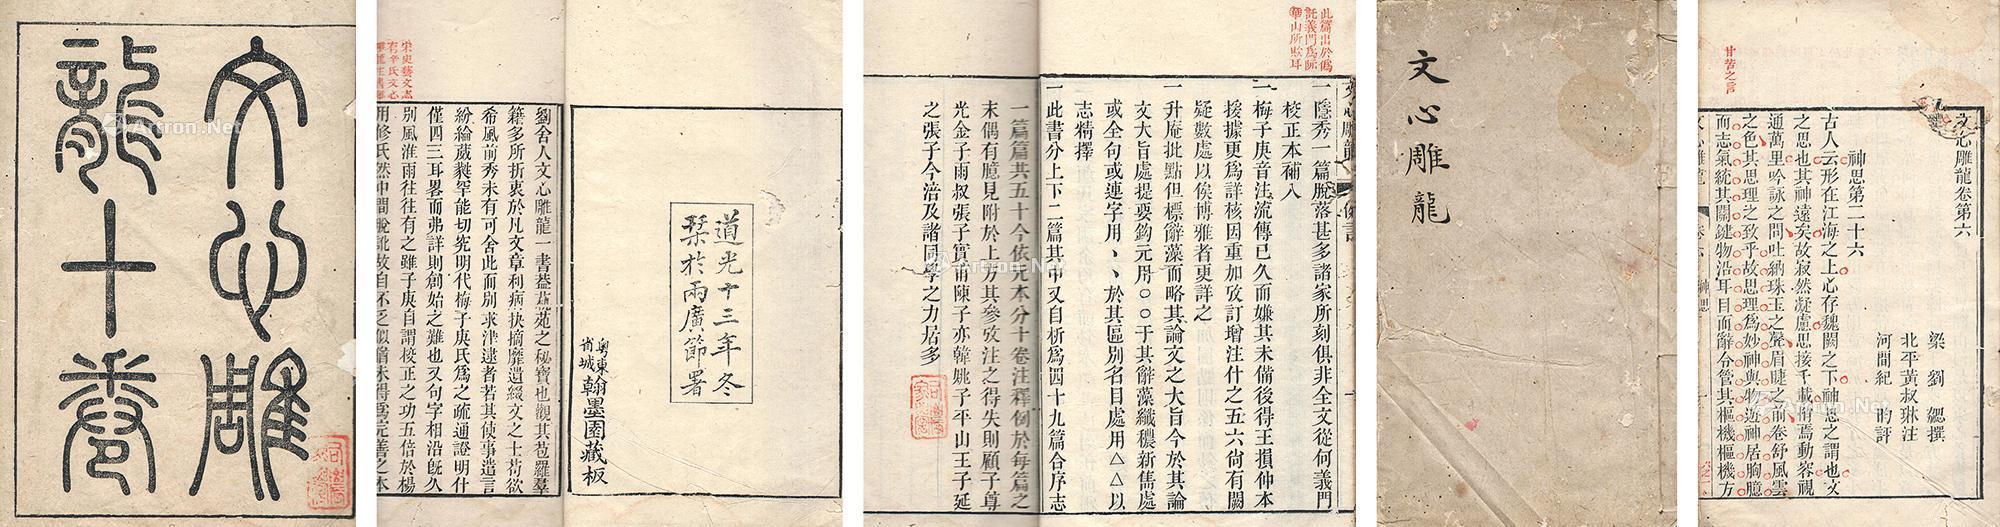 文心雕
龍十卷
道光十三年冬
栞於兩廣節署
粵東
省城
翰墨園藏板
宋史藝文志
有辛氏文心
劉舍人文心雕龍一書蓋藝苑之秘寶也觀其苞羅羣
籍多所折衷於凡文章利病抉摘靡遺綴文之士苟欲
希風前秀未有可舍此而別求津逮者若其使事遣言
紛綸葳蕤罕能切究明代梅子庚氏爲之疏通證明什
僅四三耳畧而弗詳則創始之難也又句字相沿旣久
別風淮雨往往有之雖子庚自謂挍正之功五倍於楊
用修氏然中間脫訛故自不乏似猶未得爲完善之本
此篇出於僞
託義門爲阮
華山所欺耳
一隱秀一篇脫落甚多諸家所刻俱非全文從何義門
校正本補入
一梅子庚音注流傳已久而嫌其未備後得王損仲本
援據更爲詳核因重加攷訂增注什之五六尚有闕
疑數處以俟博雅者更詳之
一升庵批點但標辭藻而略其論文之大旨今於其論
文大旨處提要鈎元用○○于其辭藻纖穠新雋處
或全句或連字用、、於其區別名目處用△△以
志精擇
一此書分上下二篇其中又自析爲四十九篇合序志
一篇篇共五十今依元本分十卷注釋例於每篇之
末偶有臆見附於上方其參攷注之得失則顧子尊
光金子雨叔張子實甫陳子亦韓姚子平山王子延
之張子今涪及諸同學之力居多
文心雕龍
甘苦之言
文心雕龍卷第六
梁 劉 勰撰
北平黃叔琳注
河間紀 昀評
神思第二十六
古人云形在江海之上心存魏闕之下神思之謂也文
之思也其神遠矣故寂然凝慮思接千載悄焉動容視
通萬里吟詠之間吐納珠玉之聲眉睫之前卷舒風雲
之色其思理之致乎故思理爲妙神與物遊神居胸臆
而志氣統其關鍵物沿耳目而辭令管其樞機樞機方